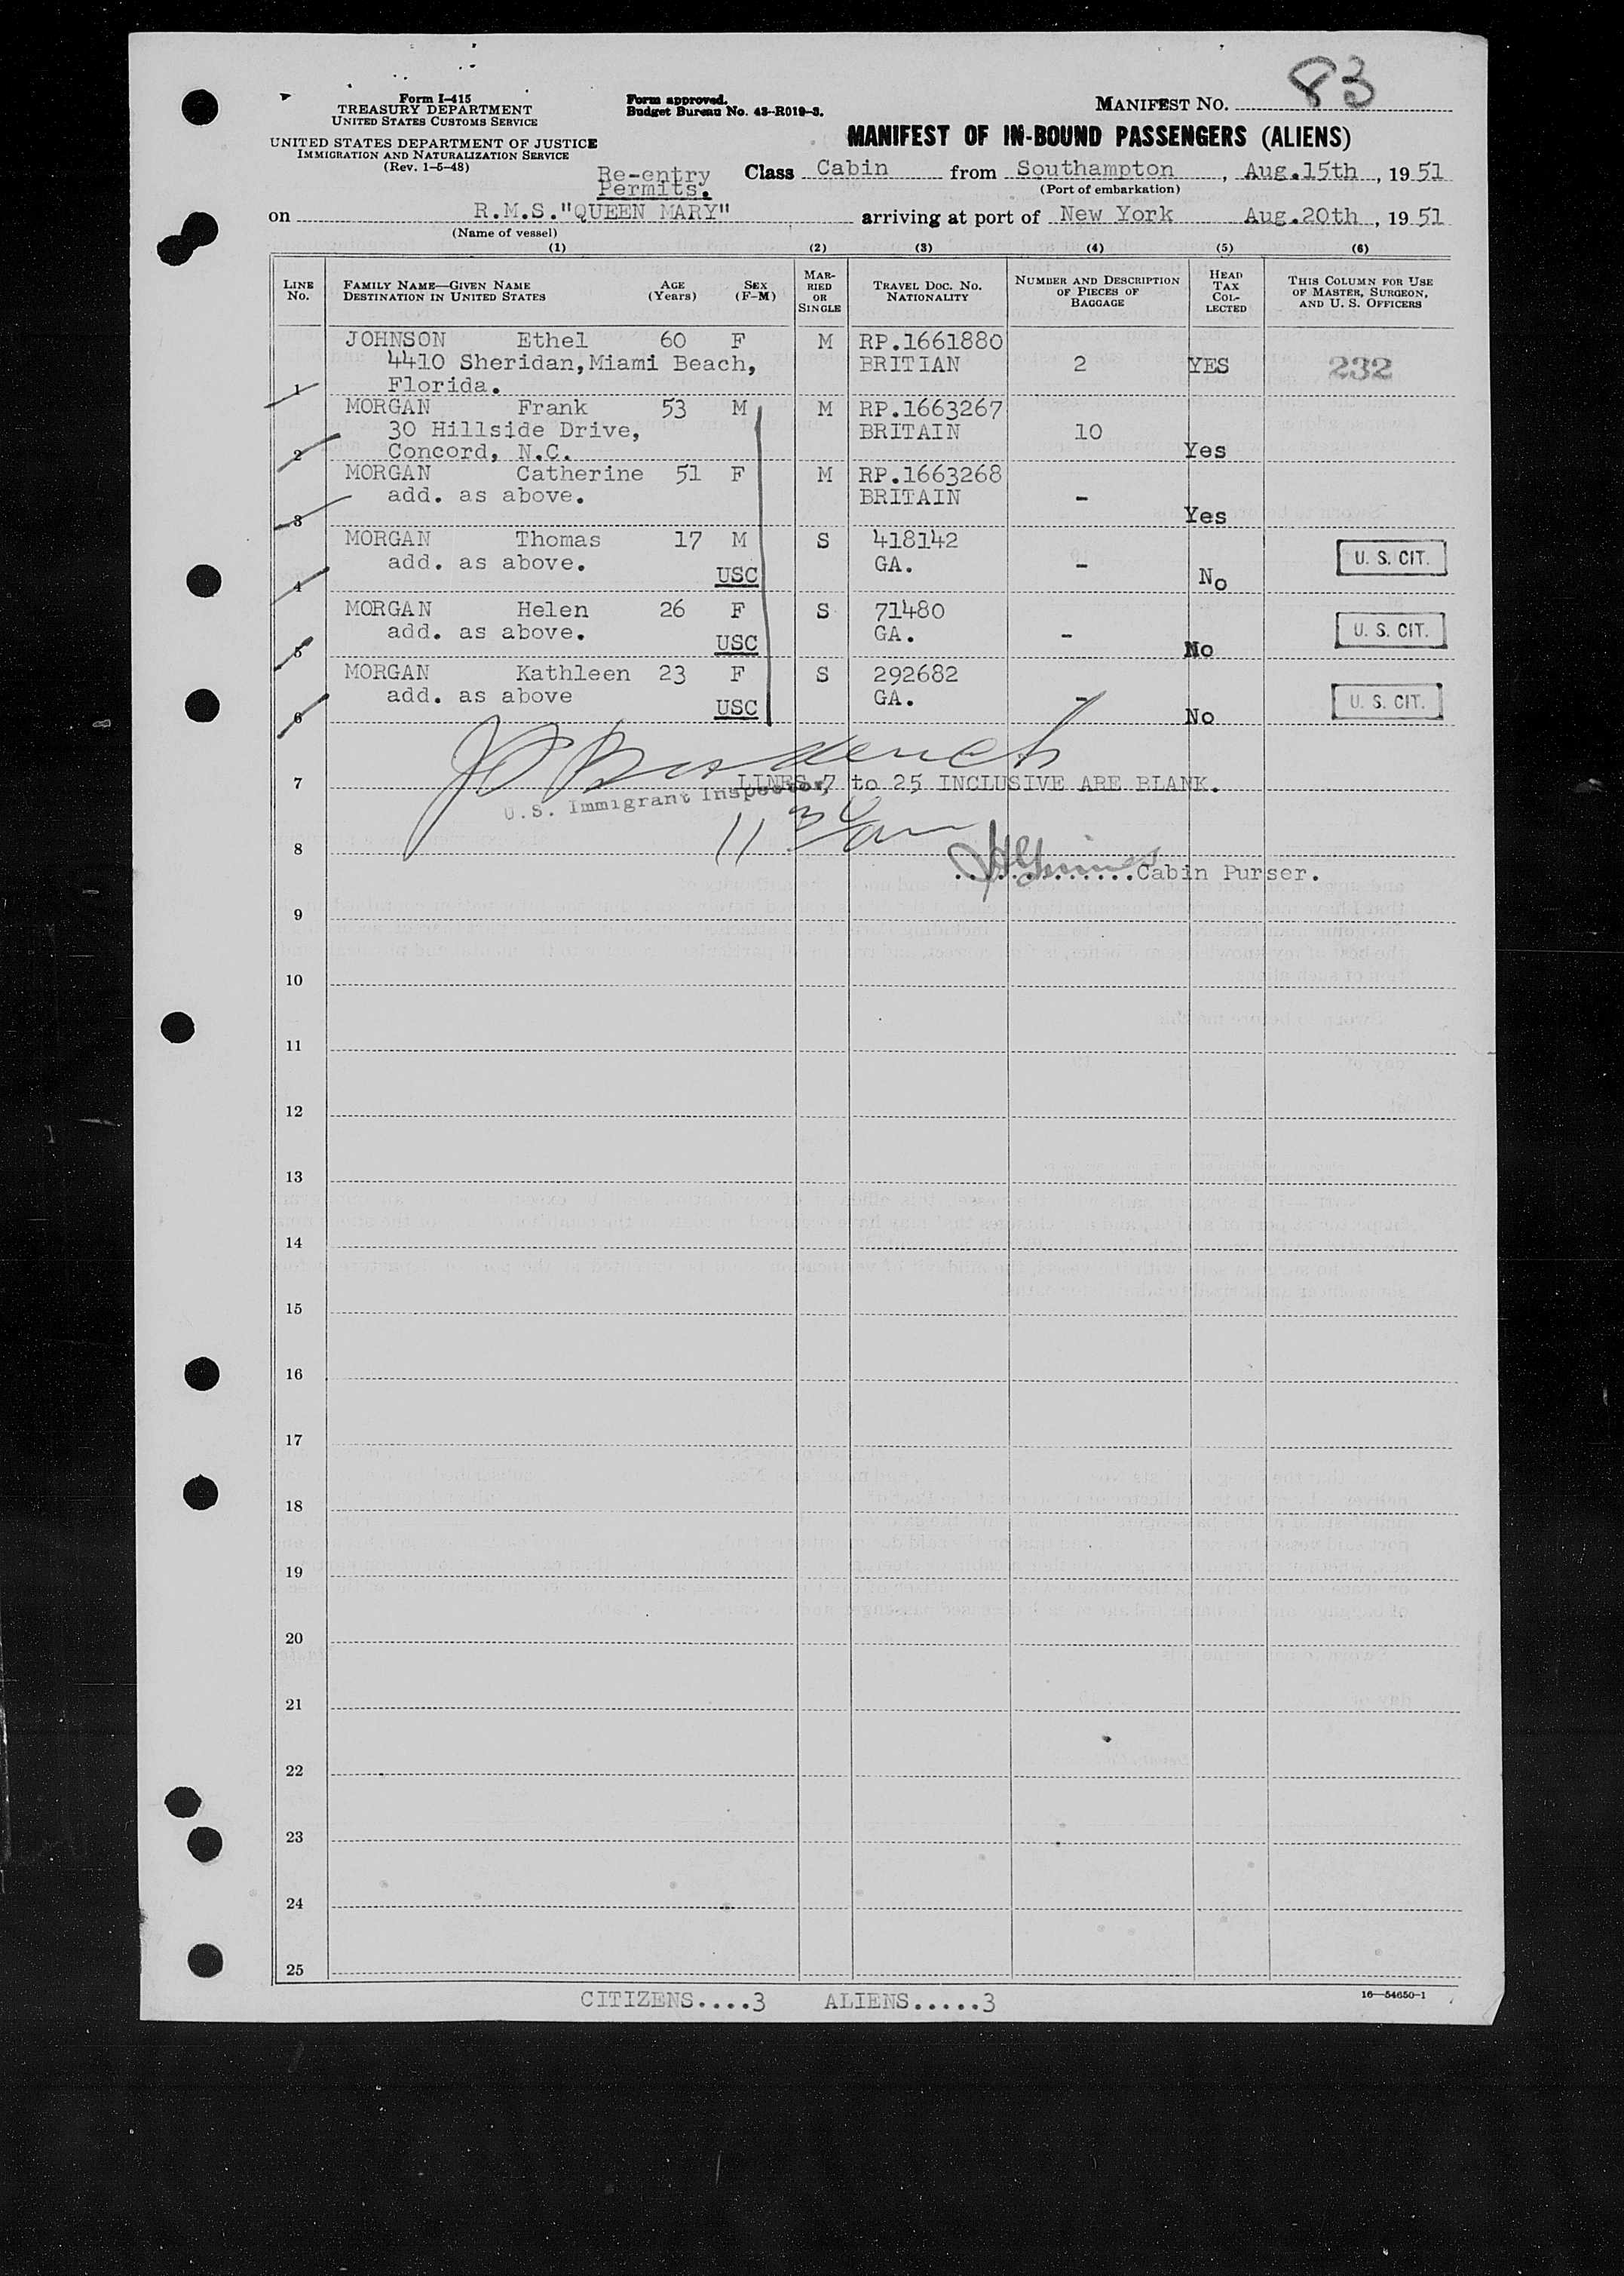 Form I-415
TREASURY DEPARTMENT
UNITED STATES CUSTOMS SERVICE
UNITED STATES DEPARTMENT OF JUSTICE
IMMIGRATION AND NATURALIZATION SERVICE
(Rev. 1-5-48)
Form approved.
Budget Bureau No. 43-R019-3.
MANIFEST NO. 83
MANIFEST OF IN-BOUND PASSENGERS (ALIENS)
Re-entry Permits.
Class Cabin from Southampton, Aug.15th, 1951
(Port of embarkation)
on R.M.S."QUEEN MARY" arriving at port of New York Aug.20th, 1951
(Name of vessel)
(1) (2) (3) (4) (5) (6)
LINE No. FAMILY NAME—GIVEN NAME DESTINATION IN UNITED STATES AGE (Years) SEX (F-M) MARRIED OR SINGLE TRAVEL DOC. NO. NATIONALITY NUMBER AND DESCRIPTION OF PIECES OF BAGGAGE HEAD TAX COLLECTED THIS COLUMN FOR USE OF MASTER, SURGEON, AND U. S. OFFICERS
JOHNSON Ethel 60 F M RP.1661880
4410 Sheridan,Miami Beach, BRITIAN 2 YES 232
1 Florida.
MORGAN Frank 53 M M RP.1663267
30 Hillside Drive, BRITAIN 10
2 Concord, N.C. Yes
MORGAN Catherine 51 F M RP.1663268
add. as above. BRITAIN -
3 Yes
MORGAN Thomas 17 M S 418142
add. as above. GA. - U. S. CIT.
4 USC No
MORGAN Helen 26 F S 71480
add. as above. GA. - U. S. CIT.
5 USC No
MORGAN Kathleen 23 F S 292682
add. as above GA. - U. S. CIT.
6 USC No
7 LINES 7 to 25 INCLUSIVE ARE BLANK.
U.S. Immigrant Inspector
11 30 am
8
.............Cabin Purser.
9
10
11
12
13
14
15
16
17
18
19
20
21
22
23
24
25
CITIZENS....3 ALIENS.....3
16—54650-1